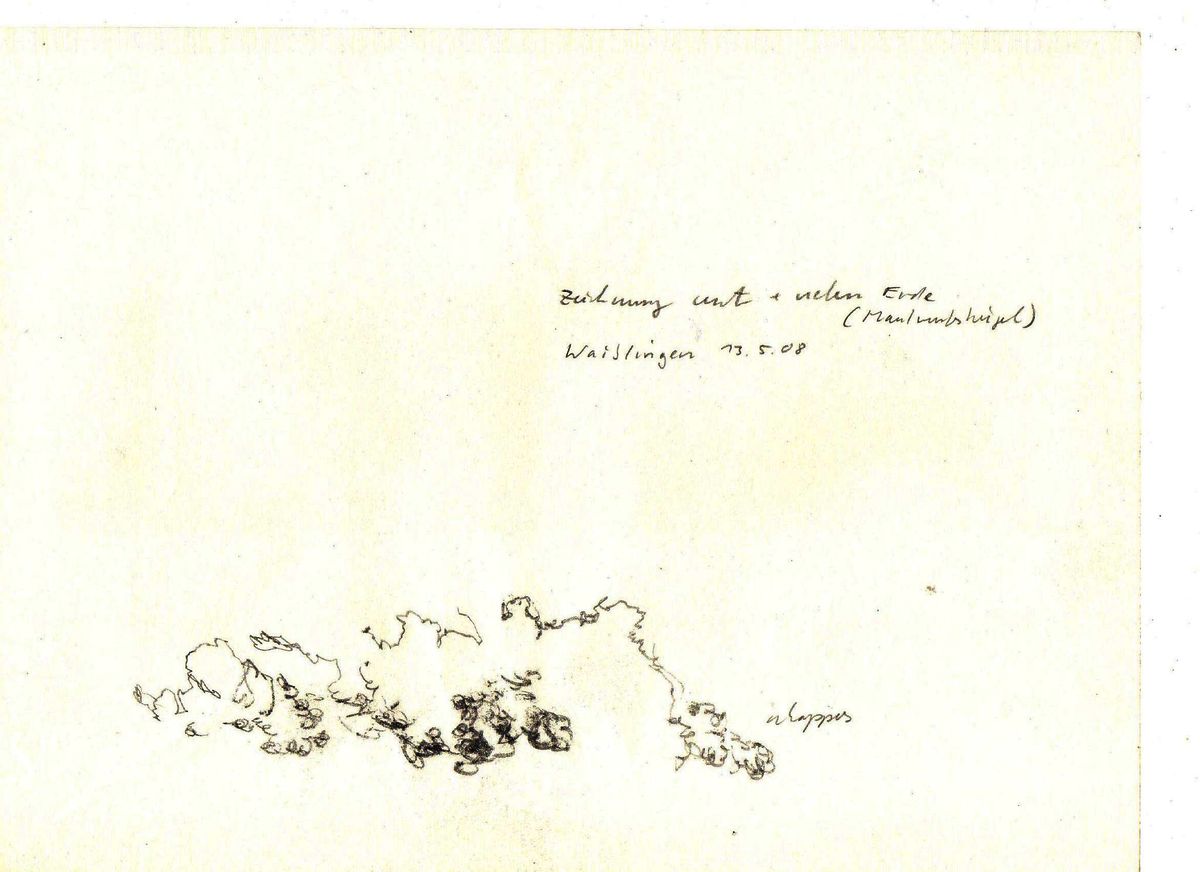 Zeichnung mit Erde
(Maulwurfshügel)
Waiblingen 13.5.08